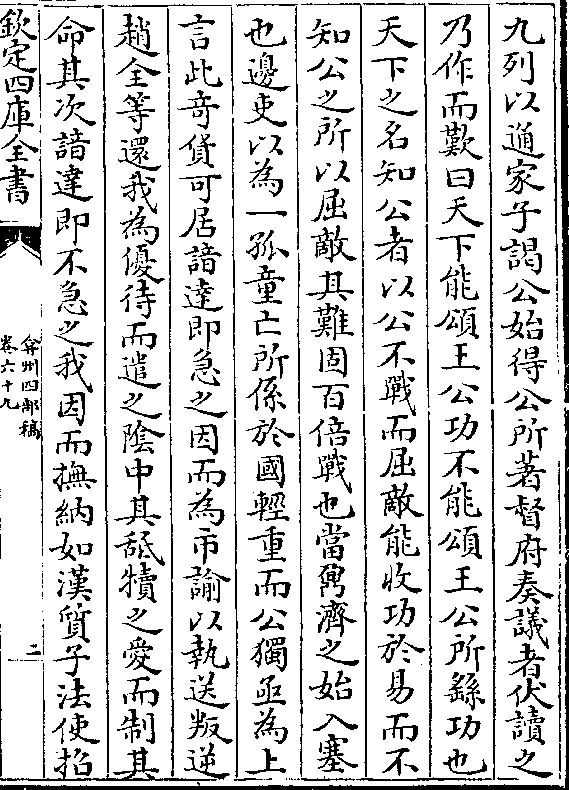 九列以通家子謁公始得公所著督府奏議者伏讀之
乃作而歎曰天下能頌王公功不能頌王公所繇功也
天下之名知公者以公不戰而屈敵能收功於易而不
知公之所以屈敵其難固百倍戰也當㢮濟之始入塞
也邊吏以為一孤童亡所係於國輕重而公獨亟為上
言此奇貨可居諳達即急之因而為市諭以執送叛逆
趙全等還我為優待而遣之陰中其舐犢之愛而制其
命其次諳達即不急之我因而撫納如漢質子法使招
欽定四庫全書
弇州四部稿
卷六十九
二